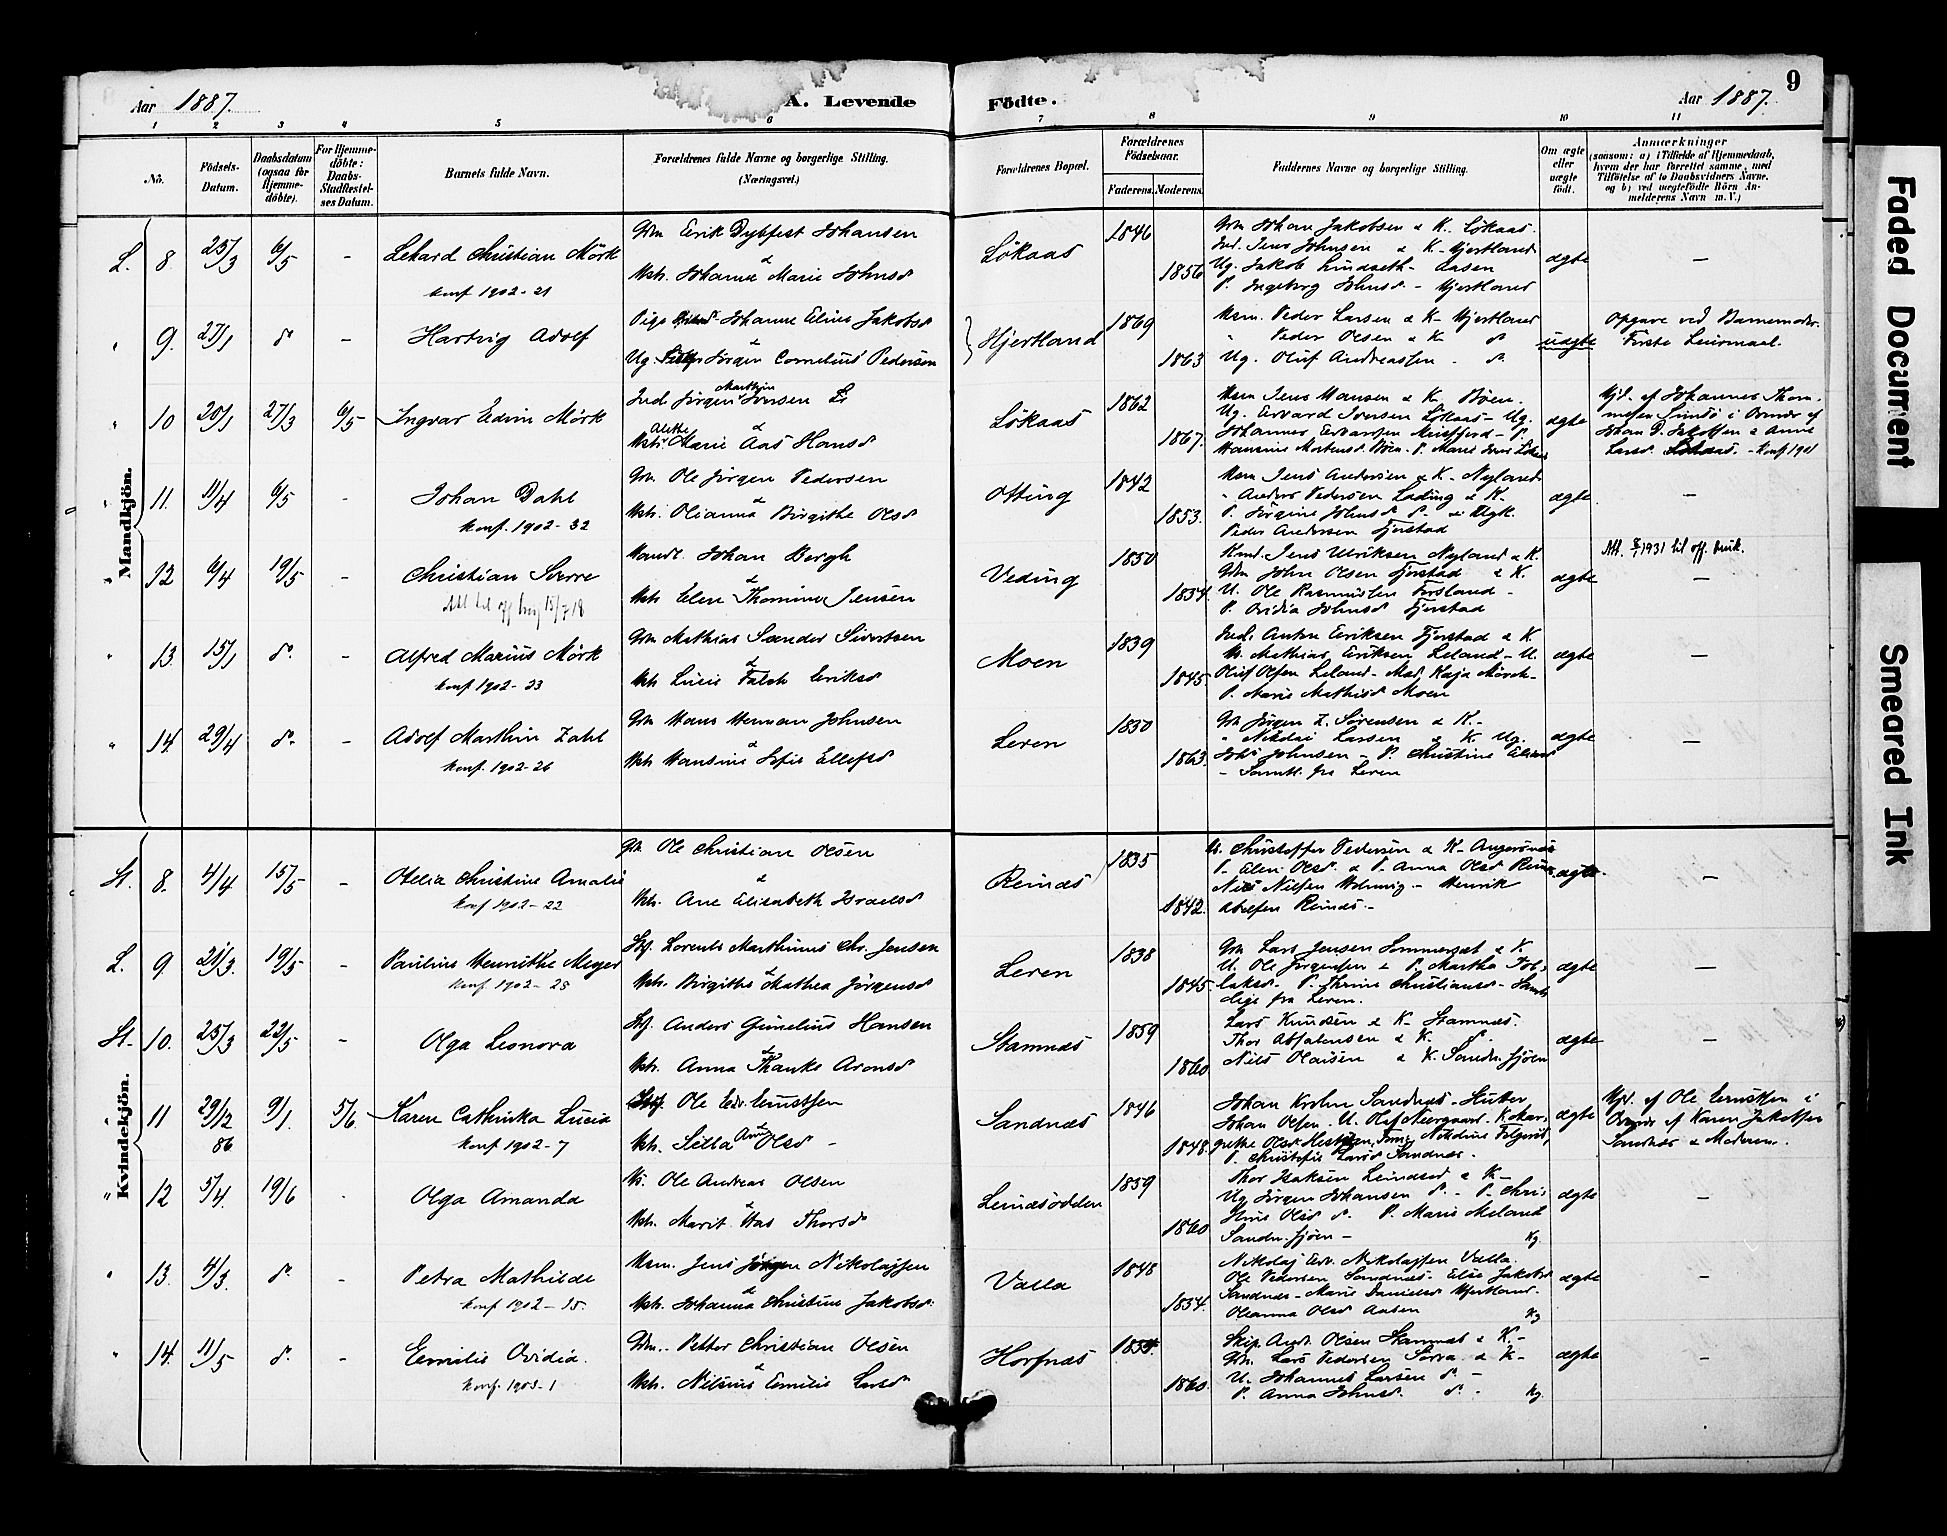 9
Aar 1887.
A. Levende Födte.
Aar 1887.
1 2 3 4 5 6 7 8 9 10 11
No.
Födsels-Datum.
Daabsdatum (ogsaa for Hjemme-döbte).
For Hjemme-döbte: Daabs-Stadfæstel-ses Datum.
Barnets fulde Navn.
Forældrenes fulde Navne og borgerlige Stilling. (Næringsvei.)
Forældrenes Bopæl.
Forældrenes Födselsaar.
Faderens. Moderens.
Faddernes Navne og borgerlige Stilling.
Om ægte eller uægte født.
Anmærkninger
(saasom: a) i Tilfælde af Hjemmedaab,
hvem der har forrettet samme, med
Tilföielse af to Daabsvidners Navne.
og b) ved uægtefödte Börn An-
melderens Navn m. V.)
Mandkjön.
L. 8. 25/3 6/5 - Lehard Christian Mörk
konf 1902-21
Erik Dybfest Johansen
&
Johanna Marie Johnsd
Lökaas 1846 1856
Johan Jakobsen & K. Lökaas.
Ind. Jens Johnsen & K. Hjertland
Ug. Jakob Lindseth - Aasen
P. Ingeborg Johnsd - Hjertland
ægte -
" 9. 27/1 do - Hartvig Adolf
Pige Johanne Eline Jakobsd
&
Ug. Jörgen Cornelius Pedersen
Hjertland 1869 1863
Peder Larsen & K Hjertland
" Peder Olsen & K do
Ug. Oluf Andreassen - do
uægte
Opgave ved Barnemoder.
Förste Leiermaal.
" 10 20/1 27/3 6/5 Ingvar Edvin Mörk
Ind. Jörgen Marthin Iversen
&
Alethe Marie Aas Hansd
Lökaas 1862 1867.
Jens Hansen & K. Böen.
Ug. Edvard Iversen Lökaas - Ug.
Johannes
Hansine Mortensd. Böen - P. Marie
ægte
Hjd. af Johannes Thom-
messen
Johan P. Jakobsen & Anne
Larsd. Lökaas. - Konf 1901
" 11. 11/4 6/5 - Johan Dahl
konf. 1902-32
Ole Jörgen Pedersen
&
Olianna Birgithe Olsd
Ofting 1842 1853.
Jens Andersen & K. Nyland
- Anders Pedersen Lading & K.
P. Jörgine Johnsd
Peder Andersen Fjerstad
ægte -
" 12 6/4 19/5 - Christian Sverre
Att til off brug 15/7 18
Johan Bergh
&
Elen Thomine Jensen
Veding 1850 1854.
Jens Ulriksen Nyland & K.
John Olsen Fjerstad & K.
U. Ole Rasmussen Forsland -
P. Ovidia Johnsd Fjerstad
ægte
Att. 1931 til off. bruk.
-
" 13. 15/1 do - Alfred Marius Mörk
konf 1902-23
Mathias Sander Sivertsen
&
Lucie Falch Eriksd
Moen 1839 1845.
Ind. Anton Eriksen Fjerstad & K
Mathias Eriksen Leland - U.
Oluf Olsen Leland - Mad. Kaja Mörch -
P. Marie Mathisd Moen
ægte -
" 14. 29/4 do - Adolf Marthin Zahl
konf. 1902-26
Hans Herman Johnsen
&
Hansine Sofie Ellefsd
Leren 1850 1863.
Jörgen Z. Sörensen & K.-
" Nikolai Larsen & K. Ug.
Johs Johnsen - P. Christine
- Samtl. fra Leren
ægte -
Kvindekjön.
St. 8. 4/4 15/5 - Otelia Christine Amalie
konf 1902-22
Ole Christian Olsen
&
Ane Elisabeth Israelsd
Reinæs 1835 1842.
U. Christoffer Pedersen & K.
P. Elen Olsd. & P. Anna Olsd Reinæs
Nils Nilsen - Henrik
Reinæs -
ægte. -
L. 9. 21/3. 19/5 - Pauline Henrikke Meyer
konf 1902-28
Lorents Marthinus Chr. Jensen
&
Birgithe Mathea Jörgensd
Leren 1838 1845
Lars Jensen & K
U. Ole Jörgensen & P. Martha
P. Thrine Christiansd -
fra Leren.
ægte -
St. 10. 25/3 22/5 - Olga Leonora
Anders Gunelius Hansen
&
Anna Thanke Aronsd
Stamnæs 1859 1860
Lars Knudsen & K. Stamnæs.
Thor Absalonsen & K. do.
Nils Olaisen & K. Sandn.sjöen
ægte -
" 11 29/12 86 9/1. 5/6 Karen Cathinka Lucia
konf 1902-7
Ole Edv. Ernstsen
&
Sella Anne Olsd -
Sandnæs 1846 1848.
Johan Krohn Sandnæs -
Johan Olsen. U. Olaf Neergaard.
P. Christofie Larsd Sandnæs.
ægte
Hjd. af Ole Ernstsen i
Overvær af Karen Jakobsen
Sandnæs & Moderen.
" 12 5/4. 19/6 - Olga Amanda
Ole Andreas Olsen
&
Marit Aas Thorsd
Leinesodden 1859 1860
Thor Isaksen Leinesod & K-
Ug Jörgen Johansen do. - P. Chris-
tine Olsd do. P. Marie Meland
Sandn.sjöen - Kg.
ægte -
" 13. 4/3. do - Petra Mathilde
konf 1902-15.
Jens Jörgen Nikolajsen
&
Johanna Christine Jakobsd.
Valla 1848 1854.
Nikolaj Edv. Nikolajsen Valla.
Ole Pedersen Sandnæs. Else Jakobsd
Sandnæs - Marie Danielsd Hjertland.
Oleanna Olsd Aasen Kg
ægte -
" 14. 11/5 do. - Emilie Ovidia.
konf. 1903-1
Petter Christian Olsen
&
Nilsine Emilie Larsd
Horfnæs 1854. 1860.
Skip. Andr. Olsen Stamnæs & K.-
Lars Pedersen Sörra. & K-
U. Johannes Larsen do -
P. Anna Johnsd. do - Kg.
ægte -
Faded Document
Smeared Ink